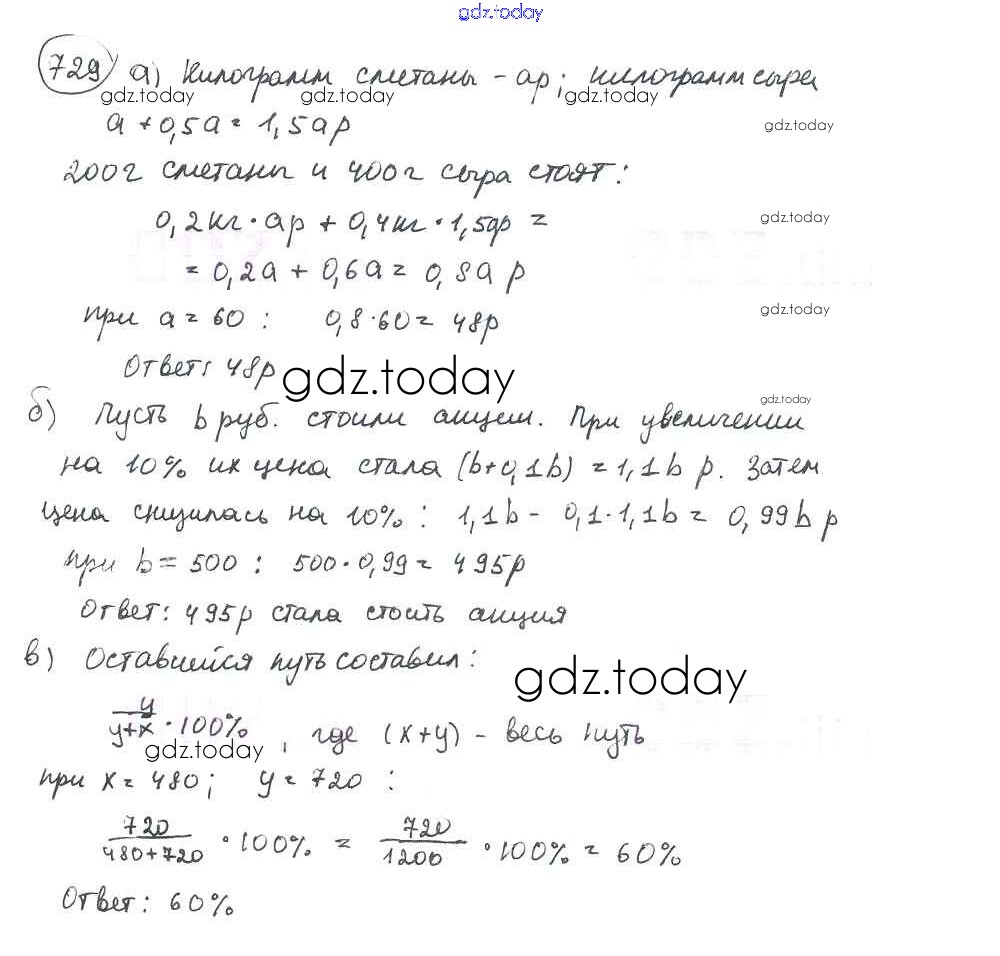 gdz.today
729 а) Килограмм сметаны - ар; килограмм сыра
gdz.today gdz.today gdz.today
а + 0,5а = 1,5а р
gdz.today
200г сметаны и 400г сыра стоят:
0,2кг · ар + 0,4кг · 1,5ар =
gdz.today
= 0,2а + 0,6а = 0,8а р
при а = 60 : 0,8·60 = 48р
gdz.today
Ответ: 48р
gdz.today
gdz.today
б) Пусть b руб. стоили акции. При увеличении
на 10% их цена стала (b+0,1b) = 1,1b р. Затем
цена снизилась на 10% : 1,1b - 0,1·1,1b = 0,99b р
при b = 500 : 500·0,99 = 495р
Ответ: 495р стала стоить акция
в) Оставшийся путь составил:
gdz.today
y/(y+x) · 100%, где (x+y) - весь путь
gdz.today
при x = 480; y = 720 :
720/(480+720) · 100% = 720/1200 · 100% = 60%
Ответ: 60%